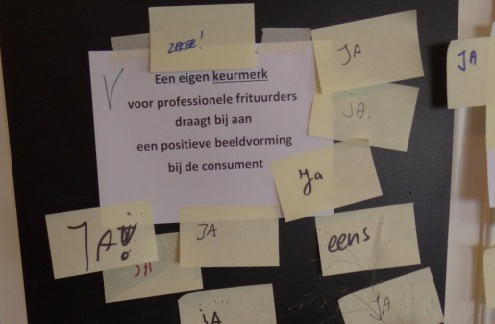 zeker!
JA
JA
V
Een eigen keurmerk
voor professionele frituurders
draagt bij aan
een positieve beeldvorming
bij de consument
JA.
Ja
JA!
JA
JA
eens
JA
JA